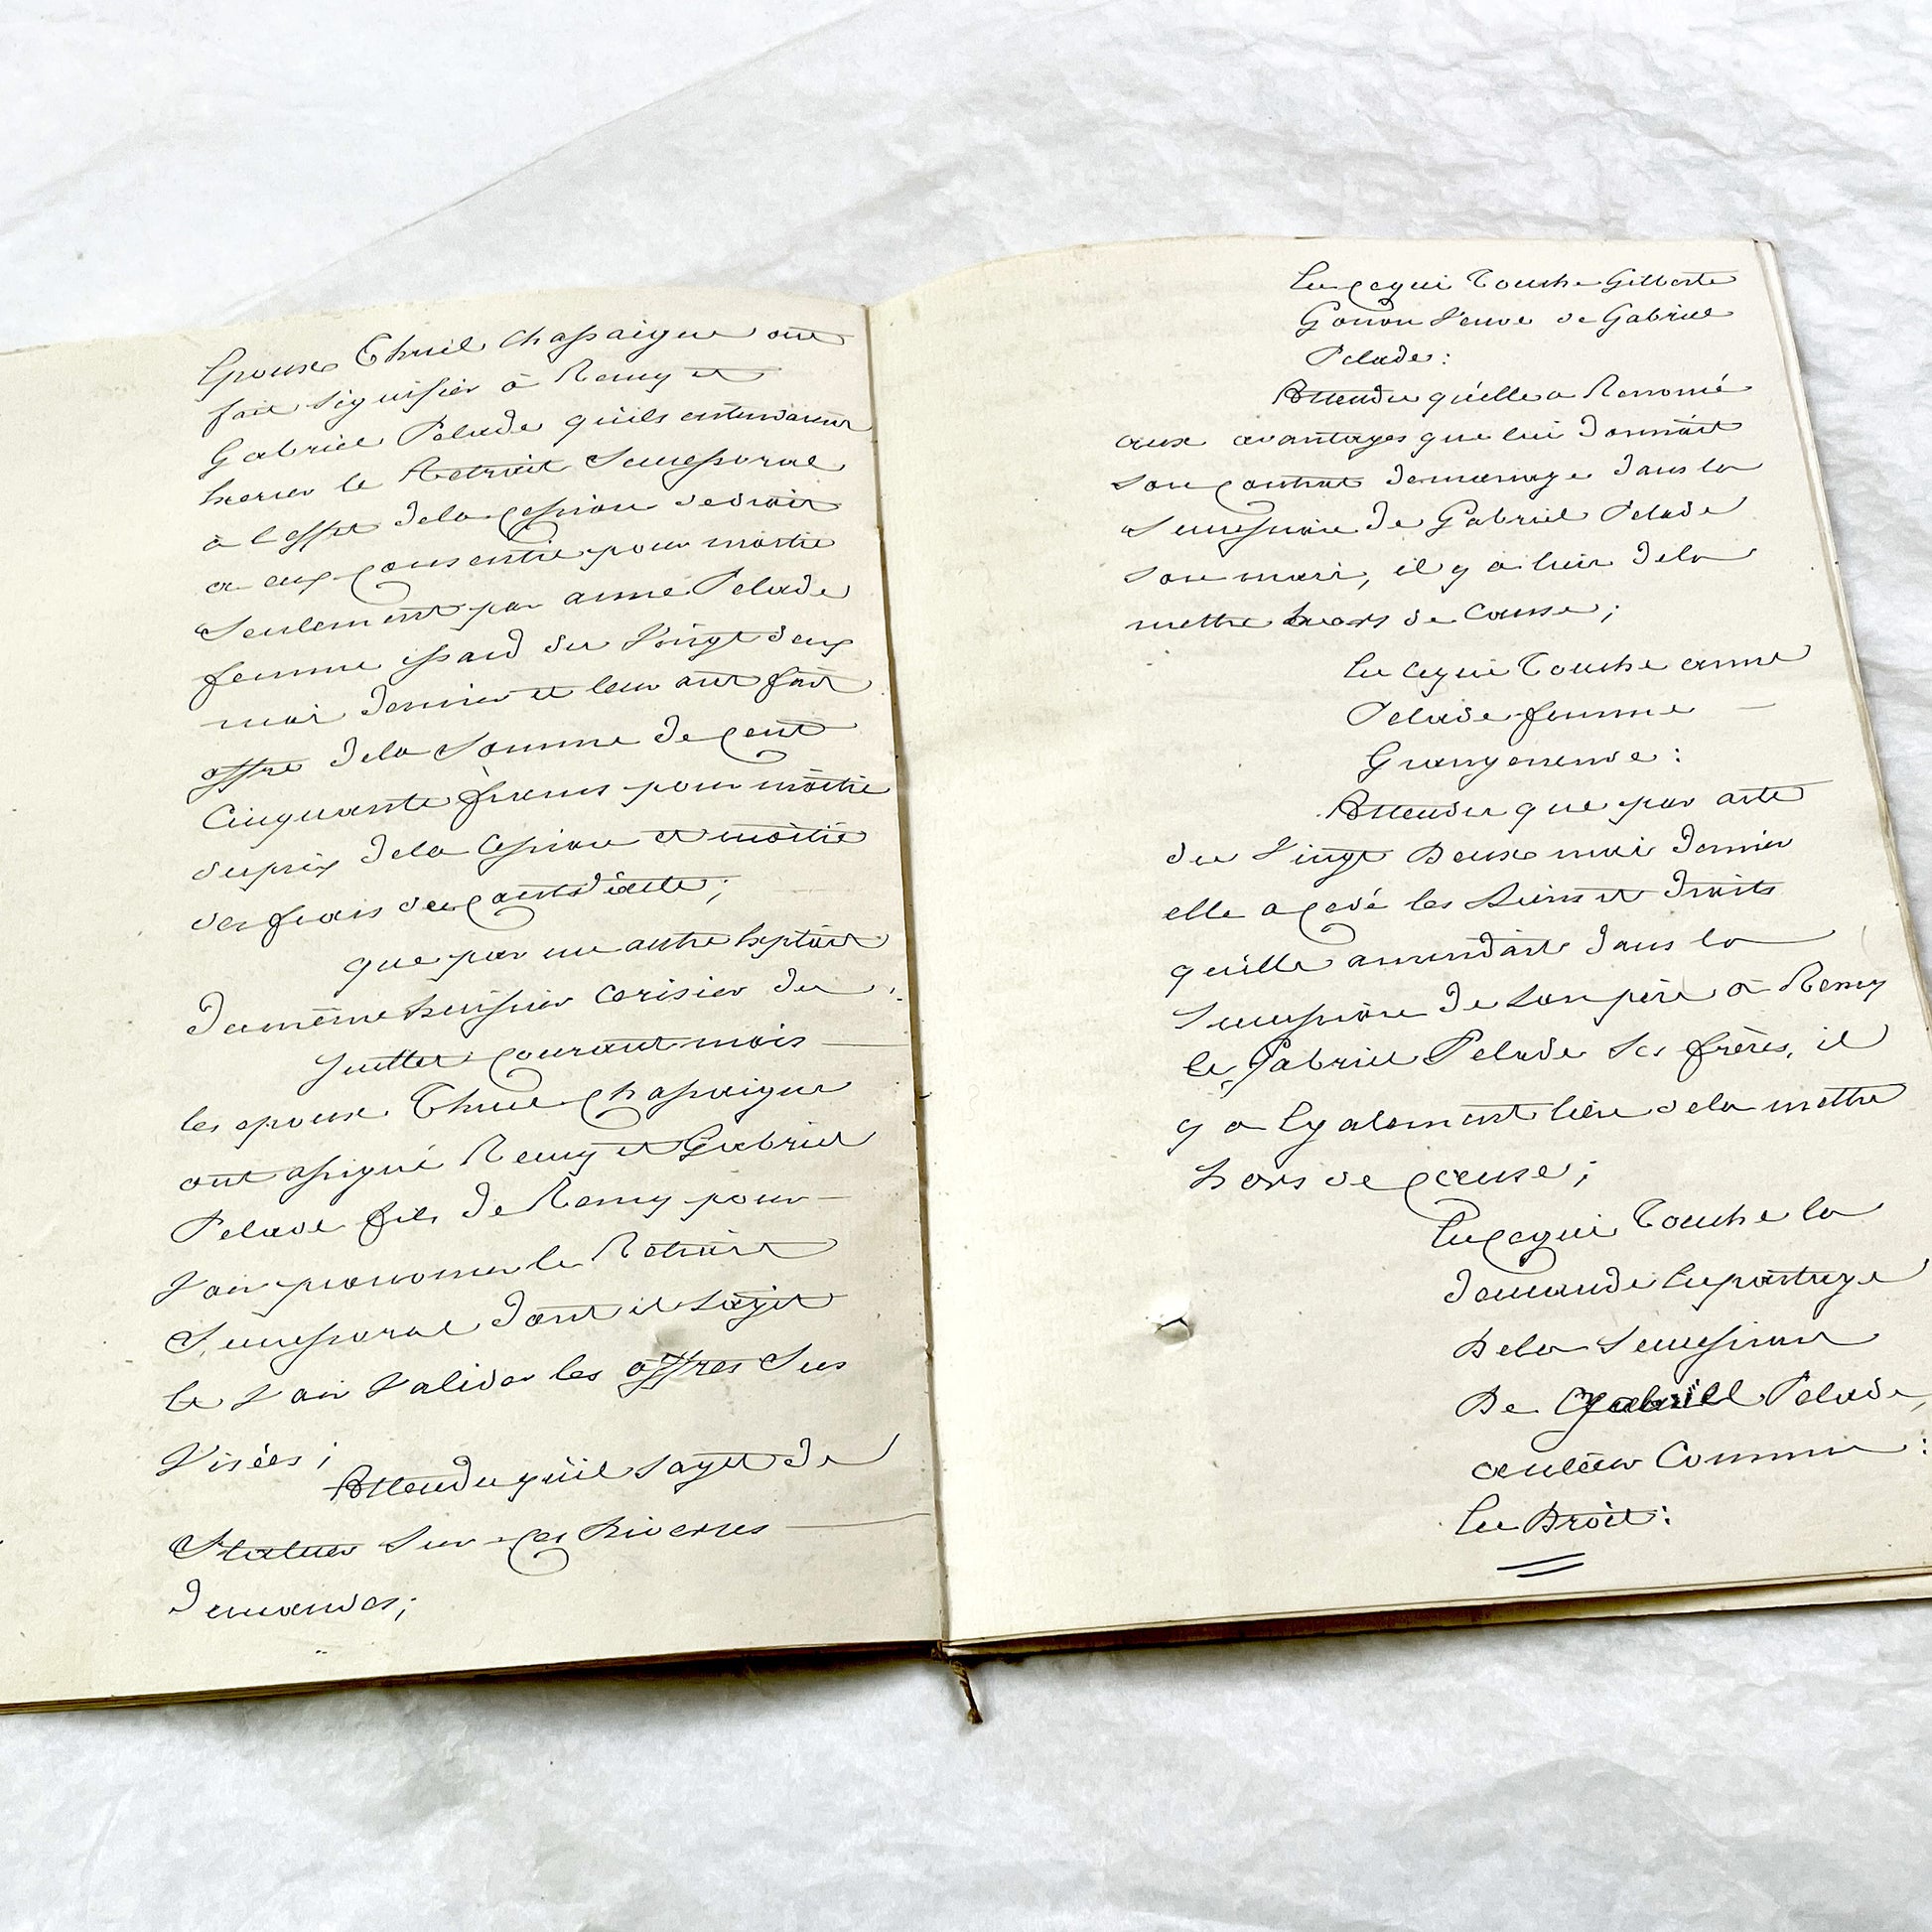 Epoux Thuel Chassaigne ont
fait signifier à Remy et
Gabriel Pelade qu'ils entendaient
Exercer le Retrait Successoral
à l'effet de la Cession de droits
a eux Consentie pour moitié
Seulement par anne Pelade
femme du Vingt deux
mai dernier et leur ont fait
offre de la Somme de Cent
Cinquante francs pour moitié
du prix de la Cession et moitié
des frais du Contrat d'icelle;
que par un autre Exploit
du même huissier Cerisier du
Juillet Courant mois
les epoux Thuel Chassaigne
ont assigné Remy et Gabriel
Pelade fils de Remy pour
Voir prononcer le Retrait
Successoral dont il s'agit
Et Voir Valider les offres Sus
Visées;
Attendu qu'il s'agit de
Statuer Sur Ces Diverses
demandes;
En Ce qui Touche Gilberte
Gonon Veuve de Gabriel
Pelade:
Attendu qu'elle a Renoncé
aux avantages que lui donnait
son Contrat de mariage dans la
Succession de Gabriel Pelade
son mari, il y a lieu de la
mettre hors de Cause;
En Ce qui Touche anne
Pelade femme
Grangeneuve:
Attendu que par acte
du Vingt Deux mai dernier
elle a Cédé les Biens et Droits
qu'elle amendait dans la
Succession de Son père à Remy
Et Gabriel Pelade Ses frères, il
y a Egalement lieu de la mettre
hors de Cause;
En Ce qui Touche la
demande En partage
De la Succession
De Gabriel Pelade,
auteur Commun:
En Droit: